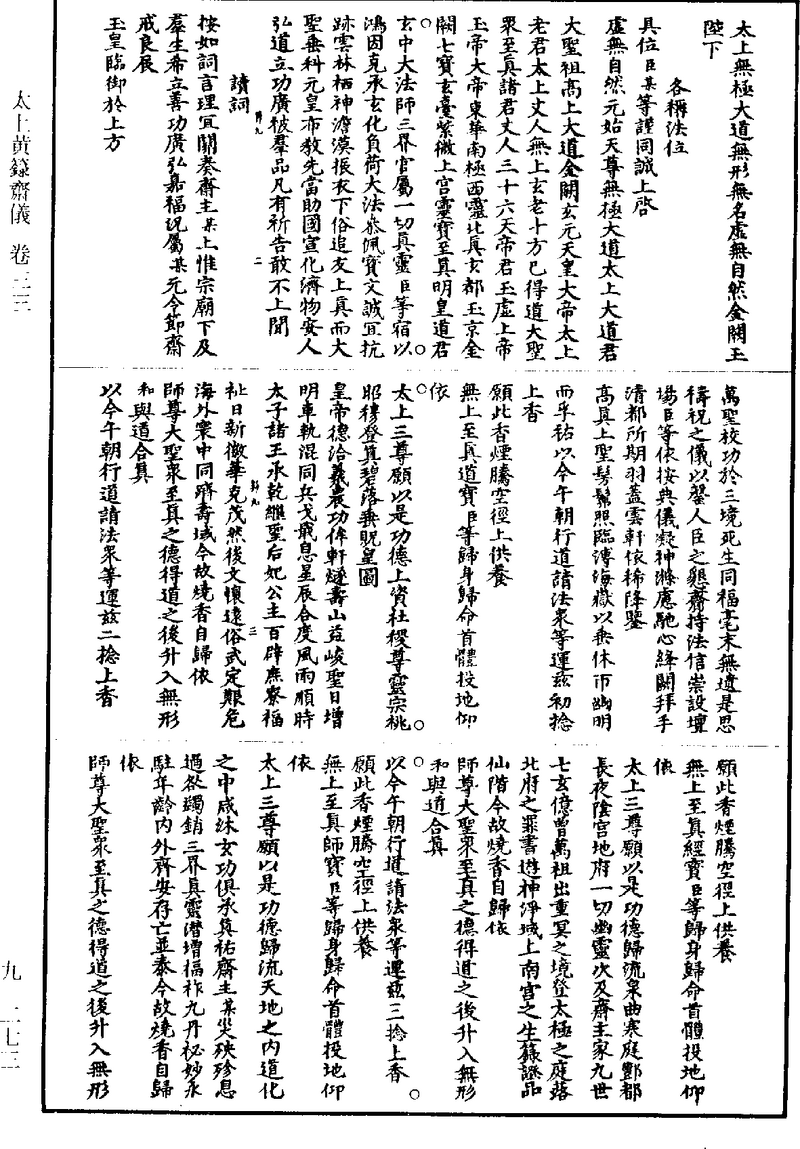 太上黃籙齋儀　卷三三
九　二七三
太上無極大道無形無名虛無自然金闕玉
陛下
各稱法位
具位臣某等謹同誠上啓
虛無自然元始天尊無極大道太上大道君
大聖祖高上大道金闕玄元天皇大帝太上
老君太上丈人無上玄老十方已得道大聖
眾至真諸君丈人三十六天帝君玉虛上帝
玉帝大帝東華南極西靈北真玄都玉京金
闕七寶玄臺紫微上宮靈寶至真明皇道君
玄中大法師三界官屬一切真靈臣等宿以
鴻因克承玄化負荷大法忝佩寶文誠宜抗
跡雲林栖神澹漠振衣下俗追友上真而大
聖垂科元皇布教先當助國宣化濟物安人
弘道立功廣被羣品凡有祈告敢不上聞
讀詞
按如詞言理宜關奏齋主某上惟宗廟下及
羣生希立善功廣弘嘉福況屬某元令節齋
戒良辰
玉皇臨御於上方
萬聖校功於三境死生同福毫末無遺是思
禱祝之儀以罄人臣之懇齎持法信崇設壇
場臣等依按典儀凝神滌慮馳心絳闕拜手
清都所期羽蓋雲軒依稀降鑒
高真上聖髣髴照臨溥海嶽以垂休帀幽明
而孚祐以今午朝行道請法眾等運茲初捻
上香
願此香煙騰空徑上供養
無上至真道寶臣等歸身歸命首體投地仰
依
太上三尊願以是功德上資社稷尊靈宗祧
昭穆登真碧落垂貺皇圖
皇帝德洽羲農功侔軒燧壽山益峻聖日增
明車軌混同兵戈戢息星辰合度風雨順時
太子諸王承乾繼聖后妃公主百辟庶寮福
祉日新徽華克茂然後文懷遠俗武定艱危
海外寰中同躋壽域今故燒香自歸依
師尊大聖眾至真之德得道之後升入無形
和與道合真
以今午朝行道請法眾等運茲二捻上香
願此香煙騰空徑上供養
無上至真經寶臣等歸身歸命首體投地仰
依
太上三尊願以是功德歸流泉曲寒庭酆都
長夜陰宮地府一切幽靈次及齋主家九世
七玄億曾萬祖出重冥之境登太極之庭落
北府之罪書遊神淨域上南宮之生籙證品
仙階今故燒香自歸依
師尊大聖眾至真之德得道之後升入無形
和與道合真
以今午朝行道請法眾等運茲三捻上香
願此香煙騰空徑上供養
無上至真師寶臣等歸身歸命首體投地仰
依
太上三尊願以是功德歸流天地之內道化
之中咸沐玄功俱承真祐齋主某災殃殄息
過咎蠲銷三界真靈潛增福祚九丹祕妙永
駐年齡內外齊安存亡並泰今故燒香自歸
依
師尊大聖眾至真之德得道之後升入無形